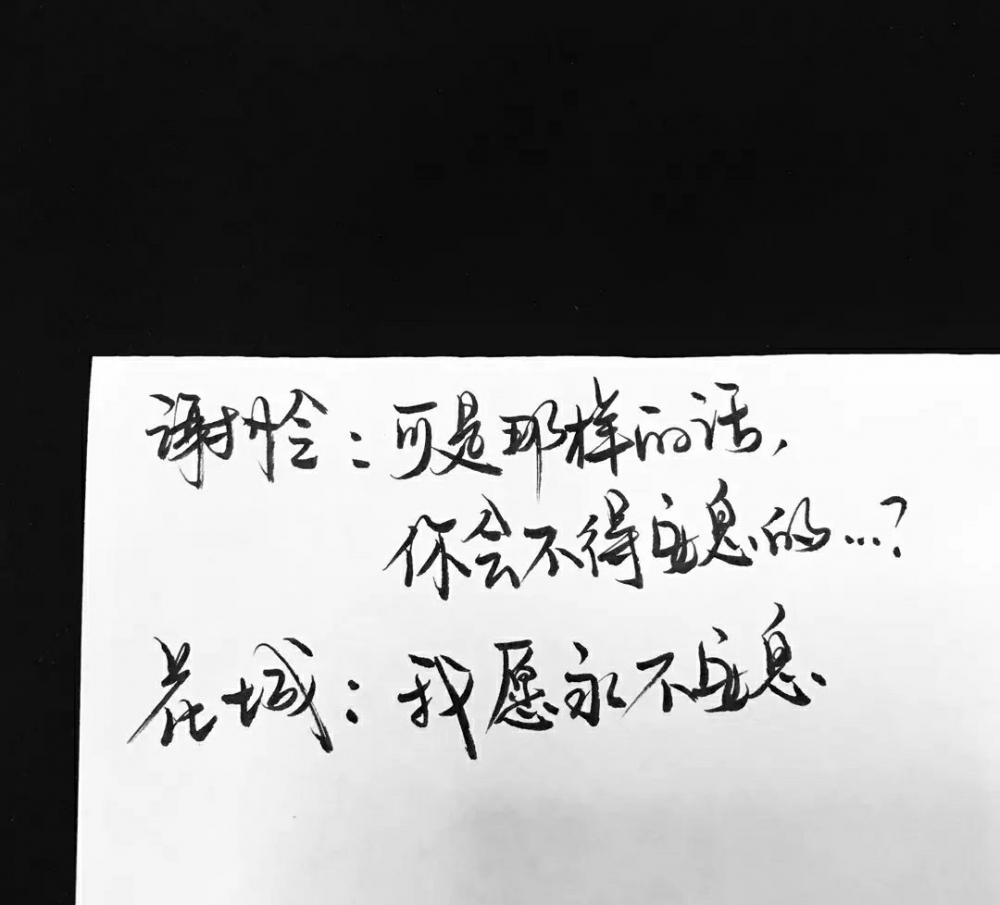 谢怜：可是那样的话，
你会不得安息的…？
花城：我愿永不安息